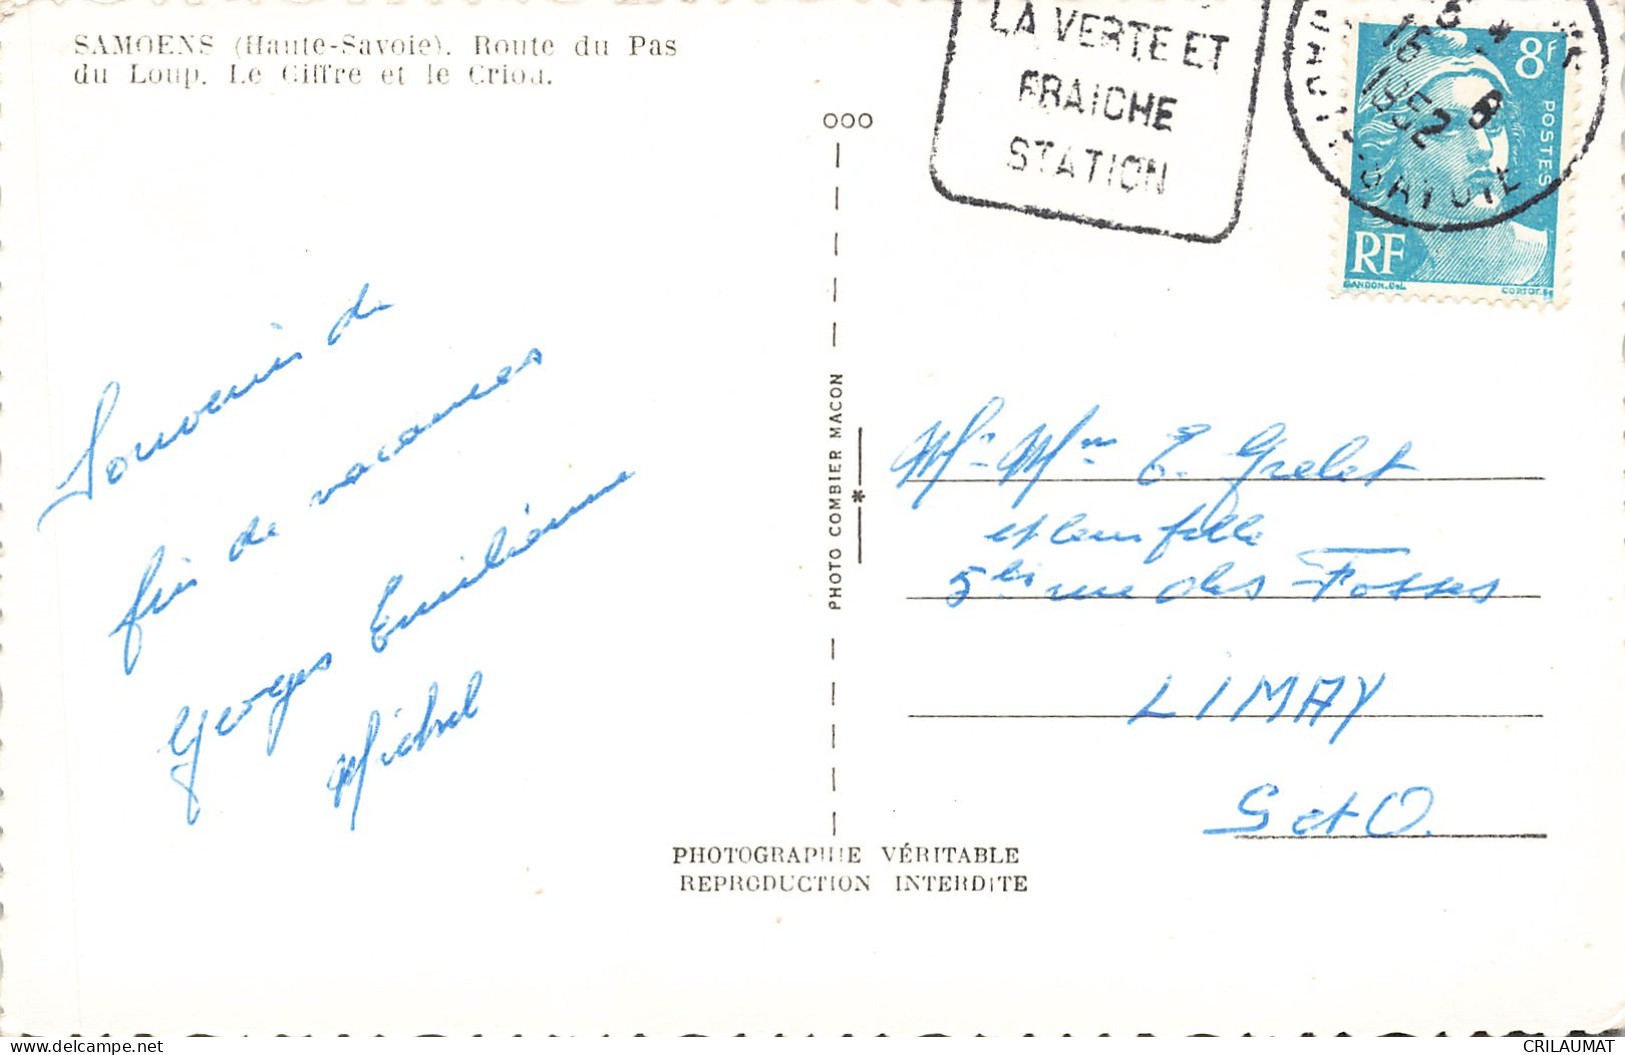 SAMOENS (Haute-Savoie). Route du Pas
du Loup. Le Giffre et le Criou.
LA VERTE ET
FRAICHE
STATION
16
1952
8F
POSTES
RF
GANDON.DEL.
CORTOT.SC
000
PHOTO COMBIER MACON
Souvenir de
fin de vacances
Georges Emilienne
Michel
Mr Mme E. Grelet
et leur fille
5bis rue des Fosses
LIMAY
S et O.
PHOTOGRAPHIE VÉRITABLE
REPRODUCTION INTERDITE
CRILAUMAT
www.delcampe.com